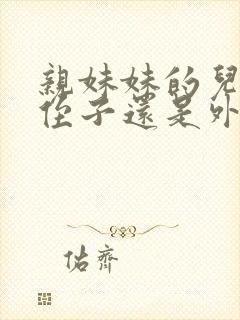 親妹妹的兒
侄子還是外
佑齊